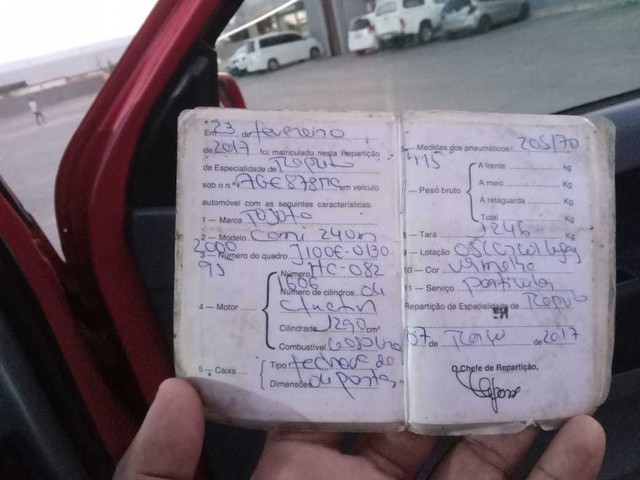 Em 23 de fevereiro
de 2017 foi matriculado nesta Repartição
de Especialidade de Maputo
sob o n.º AGE878MC um veículo
automóvel com as seguintes características:
1 — Marca Toyota
2 — Modelo
3 — Número do quadro J100E-0130
2000
95
4 — Motor
Número HC-082
1606
Número de cilindros 04
Cilindrada 1290 cm³
Combustível Gasolina
5 — Caixa
Tipo fechada de
Dimensões 04 portas
Medidas dos pneumáticos: 205/70
115
— Peso bruto
A frente kg
A meio Kg
A retaguarda Kg
Total Kg
— Tara 1246
9 — Lotação 05
10 — Cor vermelha
11 — Serviço particular
Repartição de Especialidade de Maputo
07 de Março de 2017
O Chefe de Repartição,